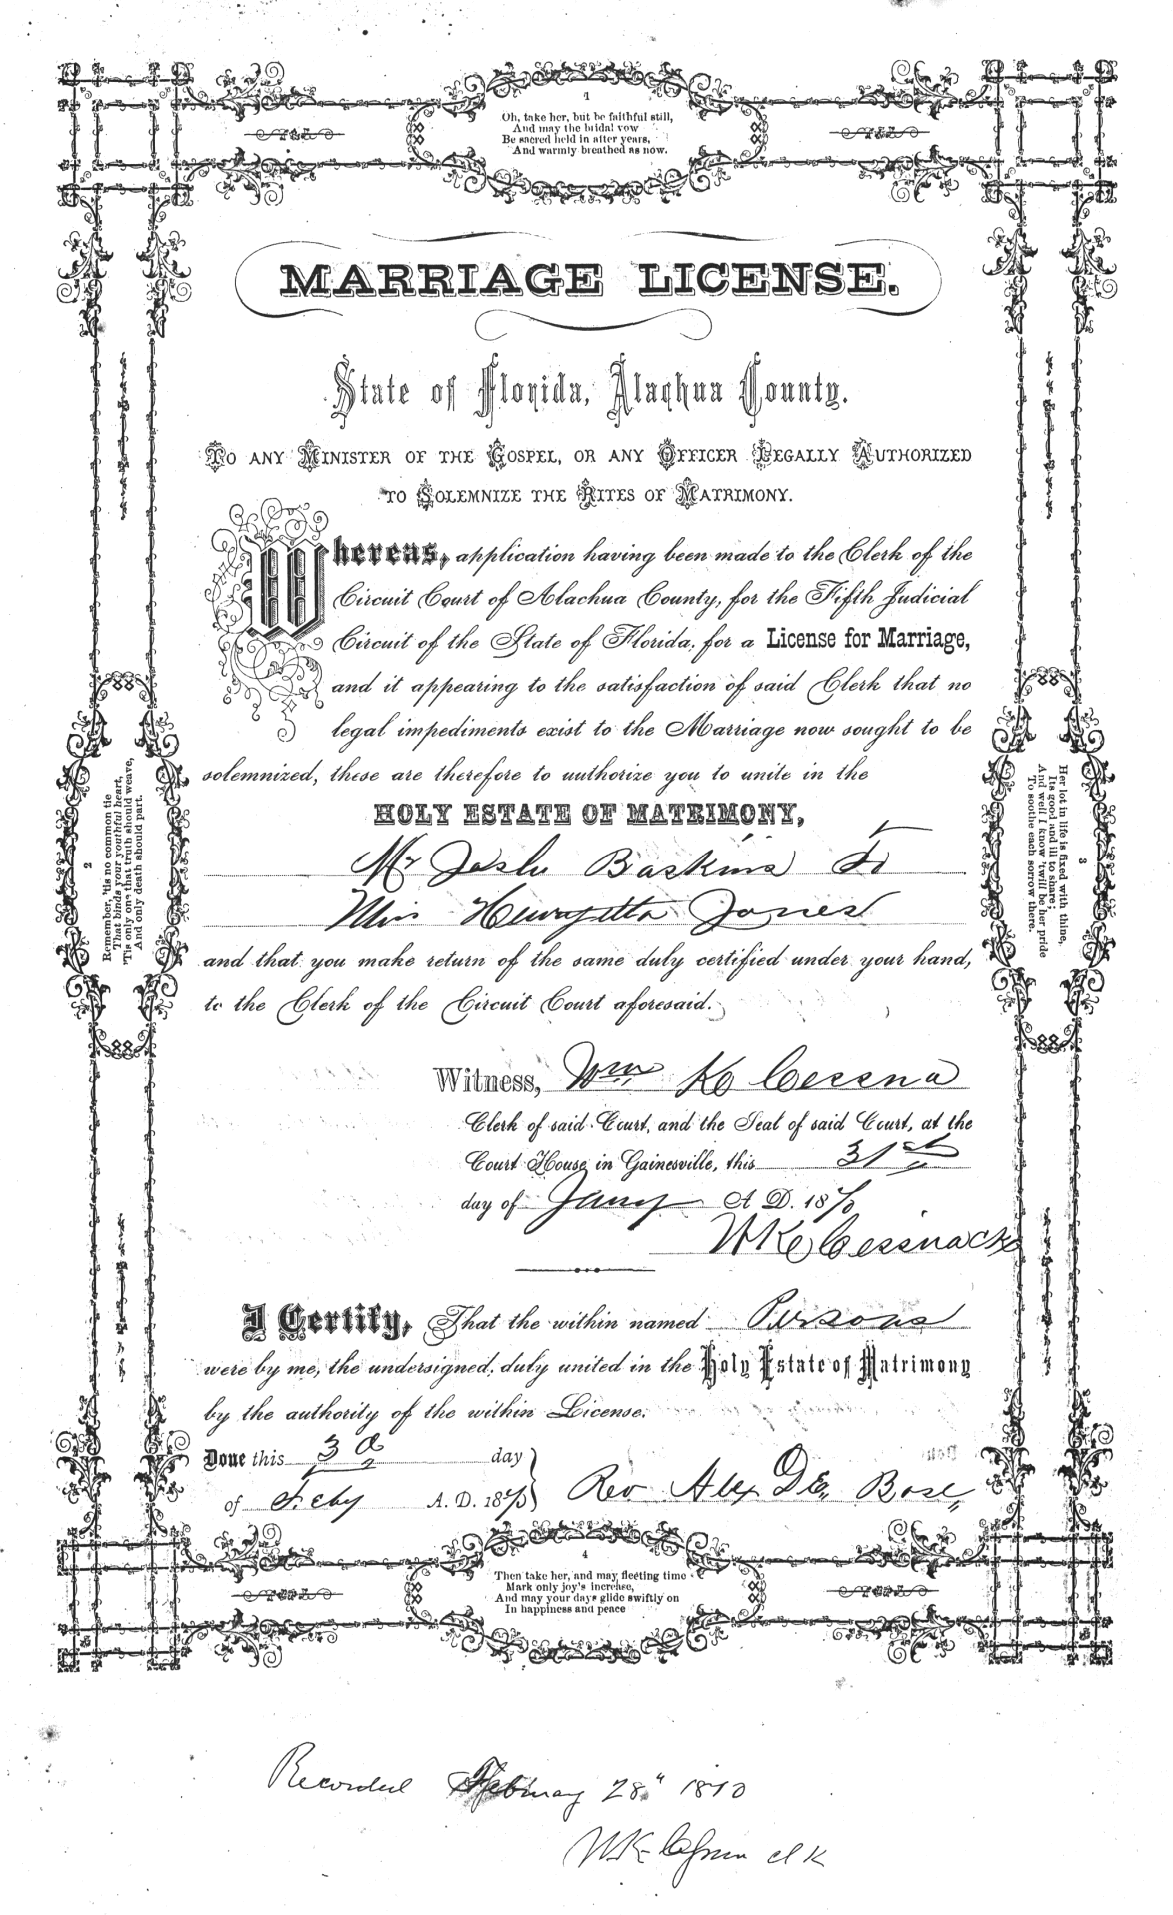 1
Oh, take her, but be faithful still,
And may the bridal vow
Be sacred held in after years,
And warmly breathed as now.
MARRIAGE LICENSE.
State of Florida, Alachua County.
TO ANY MINISTER OF THE GOSPEL, OR ANY OFFICER LEGALLY AUTHORIZED
TO SOLEMNIZE THE RITES OF MATRIMONY.
Whereas, application having been made to the Clerk of the
Circuit Court of Alachua County, for the Fifth Judicial
Circuit of the State of Florida, for a License for Marriage,
and it appearing to the satisfaction of said Clerk that no
legal impediments exist to the Marriage now sought to be
solemnized, these are therefore to authorize you to unite in the
HOLY ESTATE OF MATRIMONY,
Mr Baskins To
Miss Jones
and that you make return of the same duly certified under your hand,
to the Clerk of the Circuit Court aforesaid.
Witness, Wm K Cessna
Clerk of said Court, and the Seal of said Court, at the
Court House in Gainesville, this 31st
day of Jany A. D. 1870
W K Cessna Clk
I Certify, That the within named Persons
were by me, the undersigned, duly united in the Holy Estate of Matrimony
by the authority of the within License.
Done this 3d day
of Feby A. D. 1870 Rev Alex De Bose
2
Remember, 'tis no common tie
That binds your youthful heart,
'Tis only one that truth should weave,
And only death should part.
3
Her lot in life is fixed with thine,
Its good and ill to share;
And well I know 'twill be her pride
To soothe each sorrow there.
4
Then take her, and may fleeting time
Mark only joy's increase,
And may your days glide swiftly on
In happiness and peace
Recorded February 28" 1870
W K Cessna clk